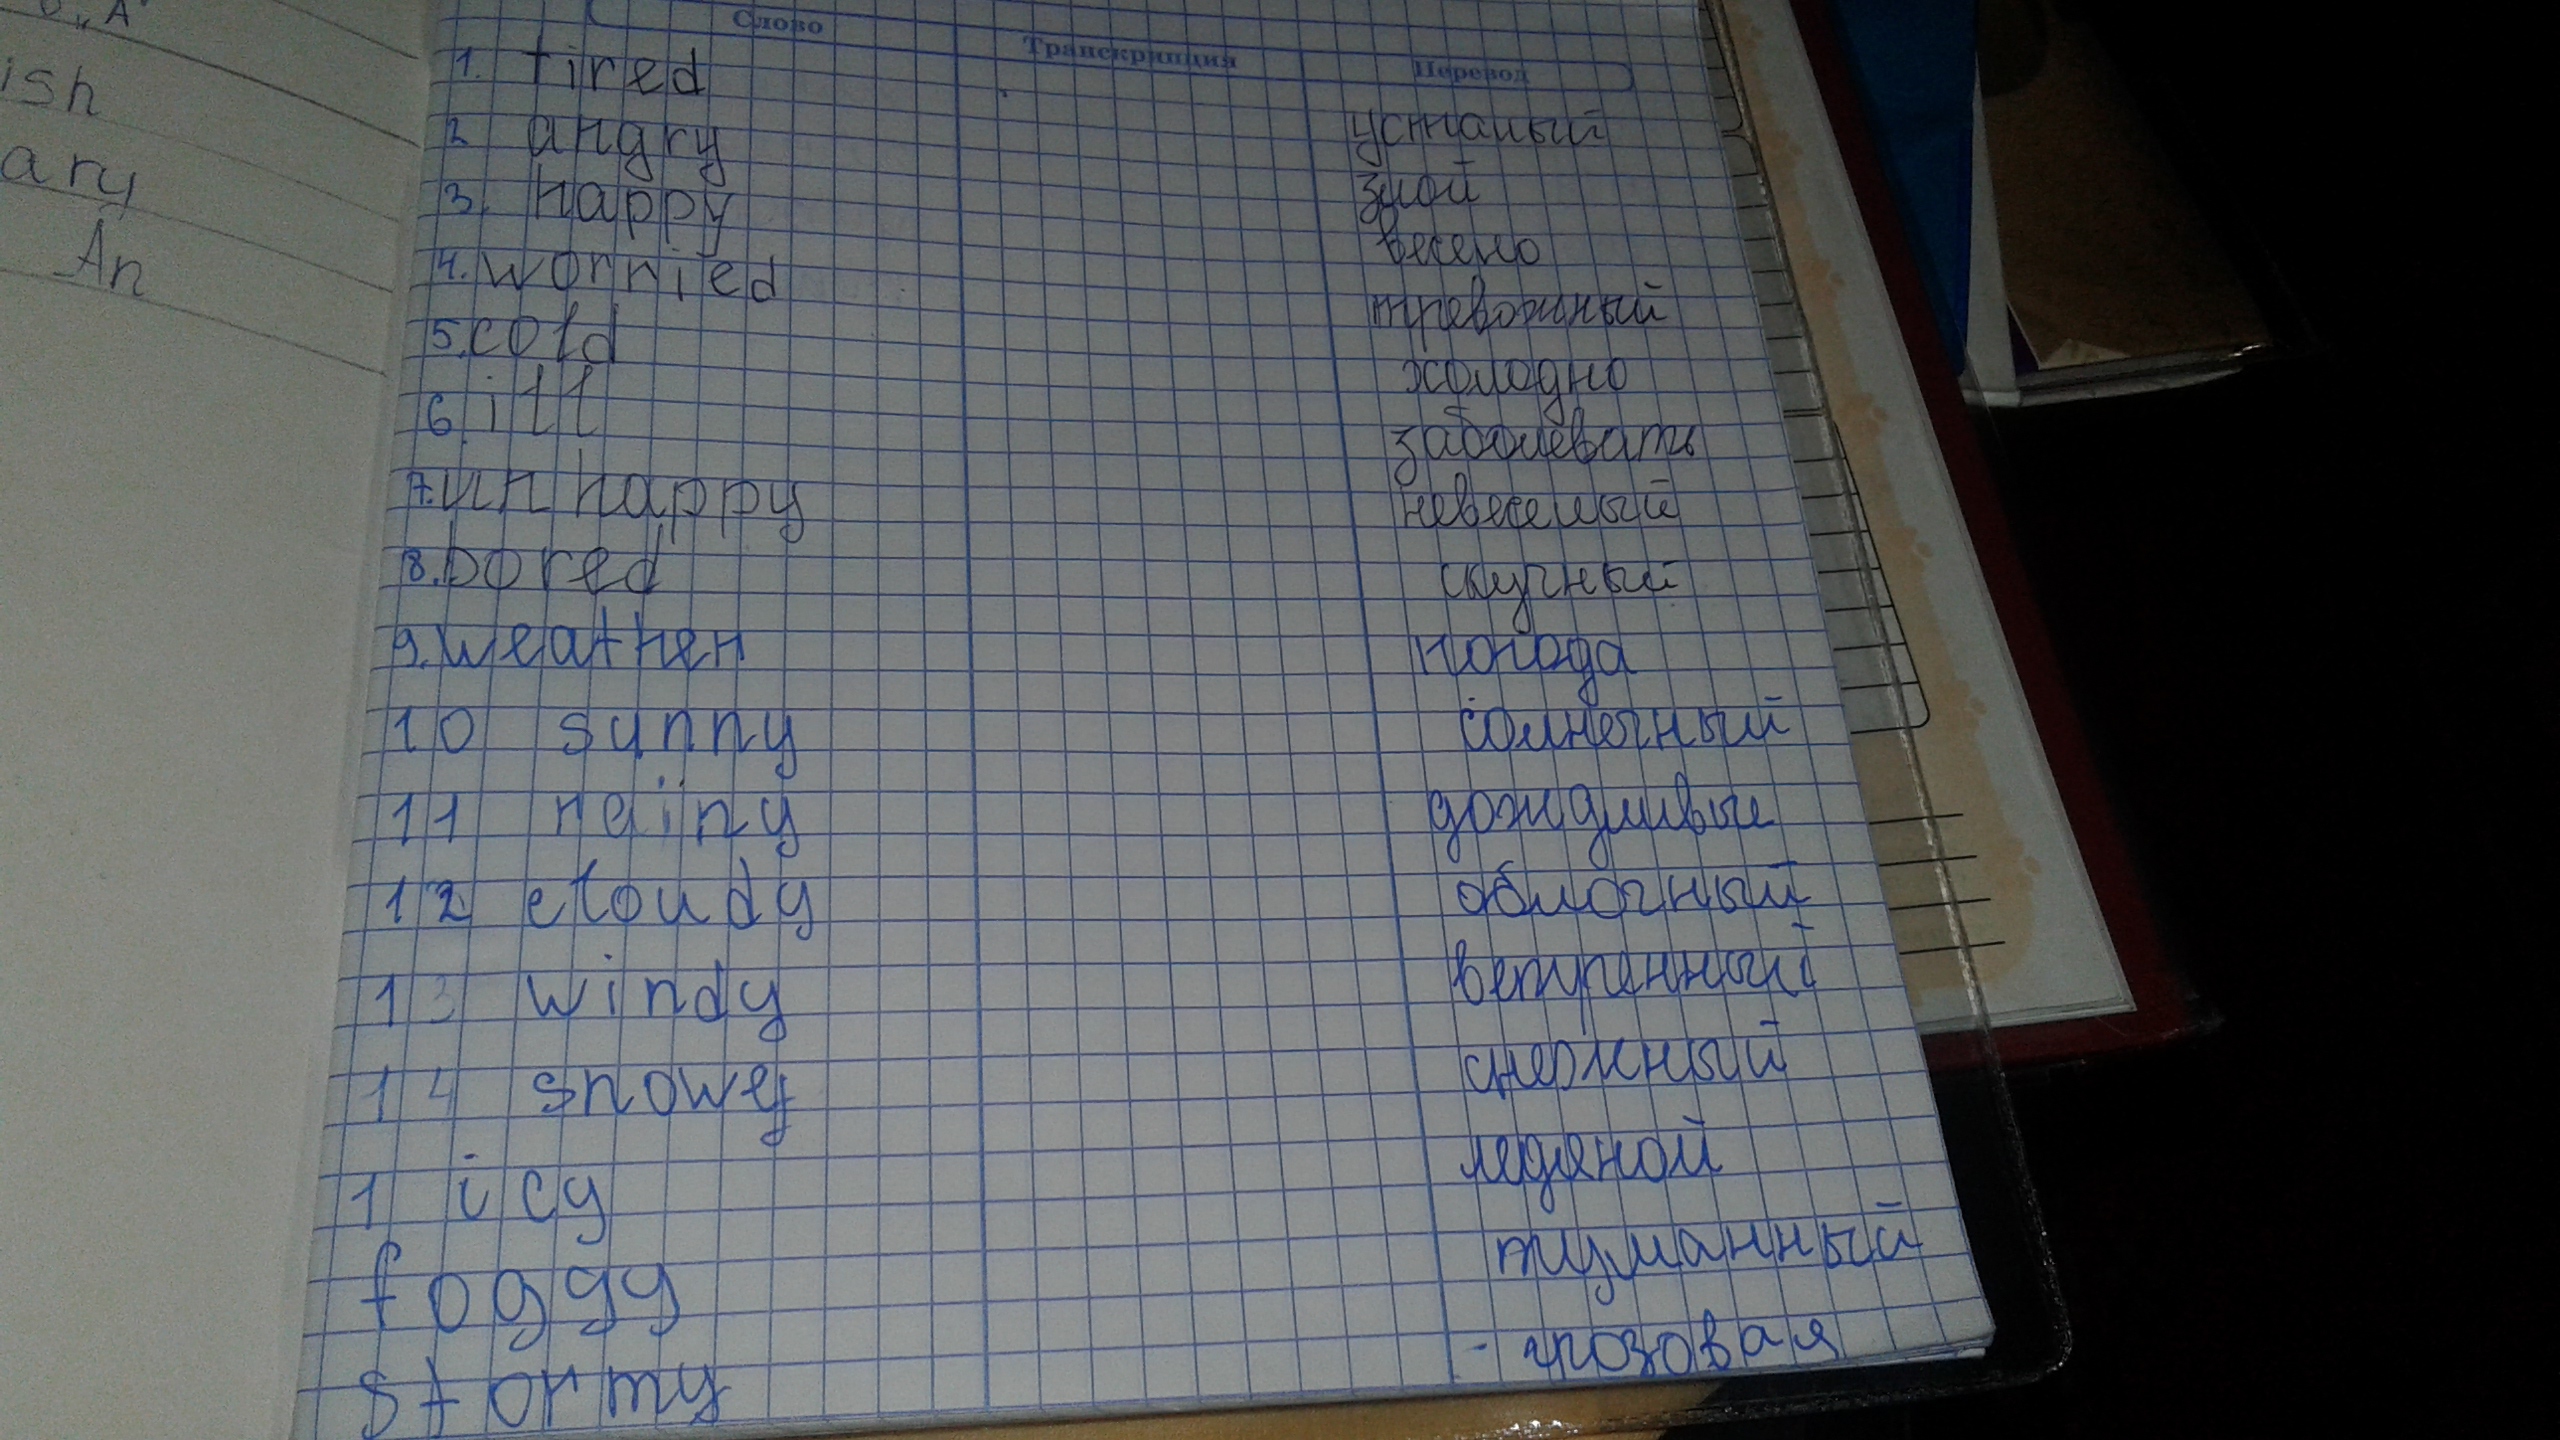 ish
ary
An
Слово Транскрипция Перевод
1. tired усталый
2 angry злой
3. happy весело
4. worried тревожный
5. cold холодно
6. ill заболевать
7. unhappy невеселый
8. bored скучный
9. weather погода
10 sunny солнечный
11 rainy дождливые
12 cloudy облачный
13 windy ветренный
14 snowy снежный
1 icy ледяной
foggy туманный
stormy - грозовая